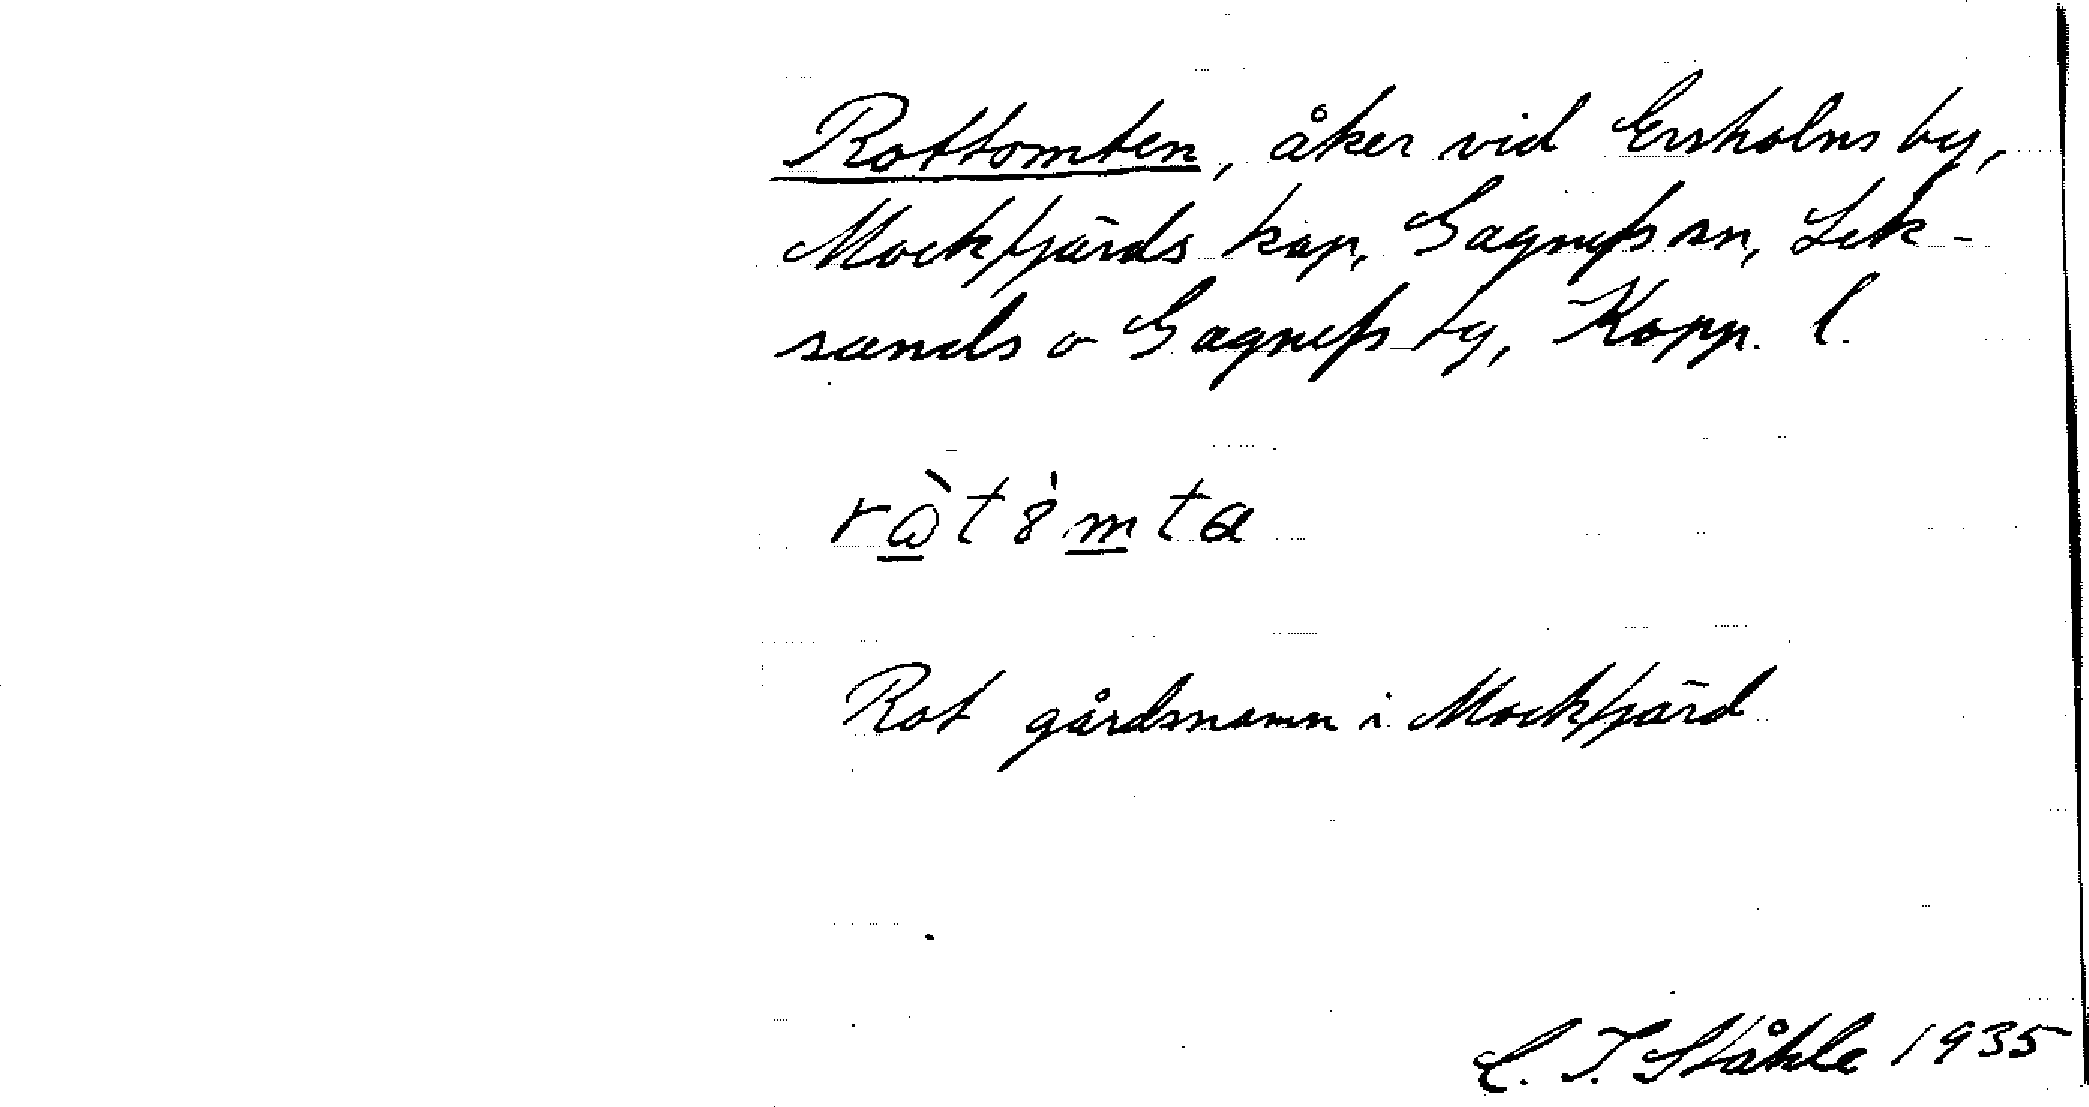 Rottomten, åker vid Ersholns by,
Mockfjärds kap, Gagnefs sn, Lek-
sands o Gagnefs tg, Kopp. l.
Rot gårdsnamn i Mockfjärd
C. I. Ståhle 1935